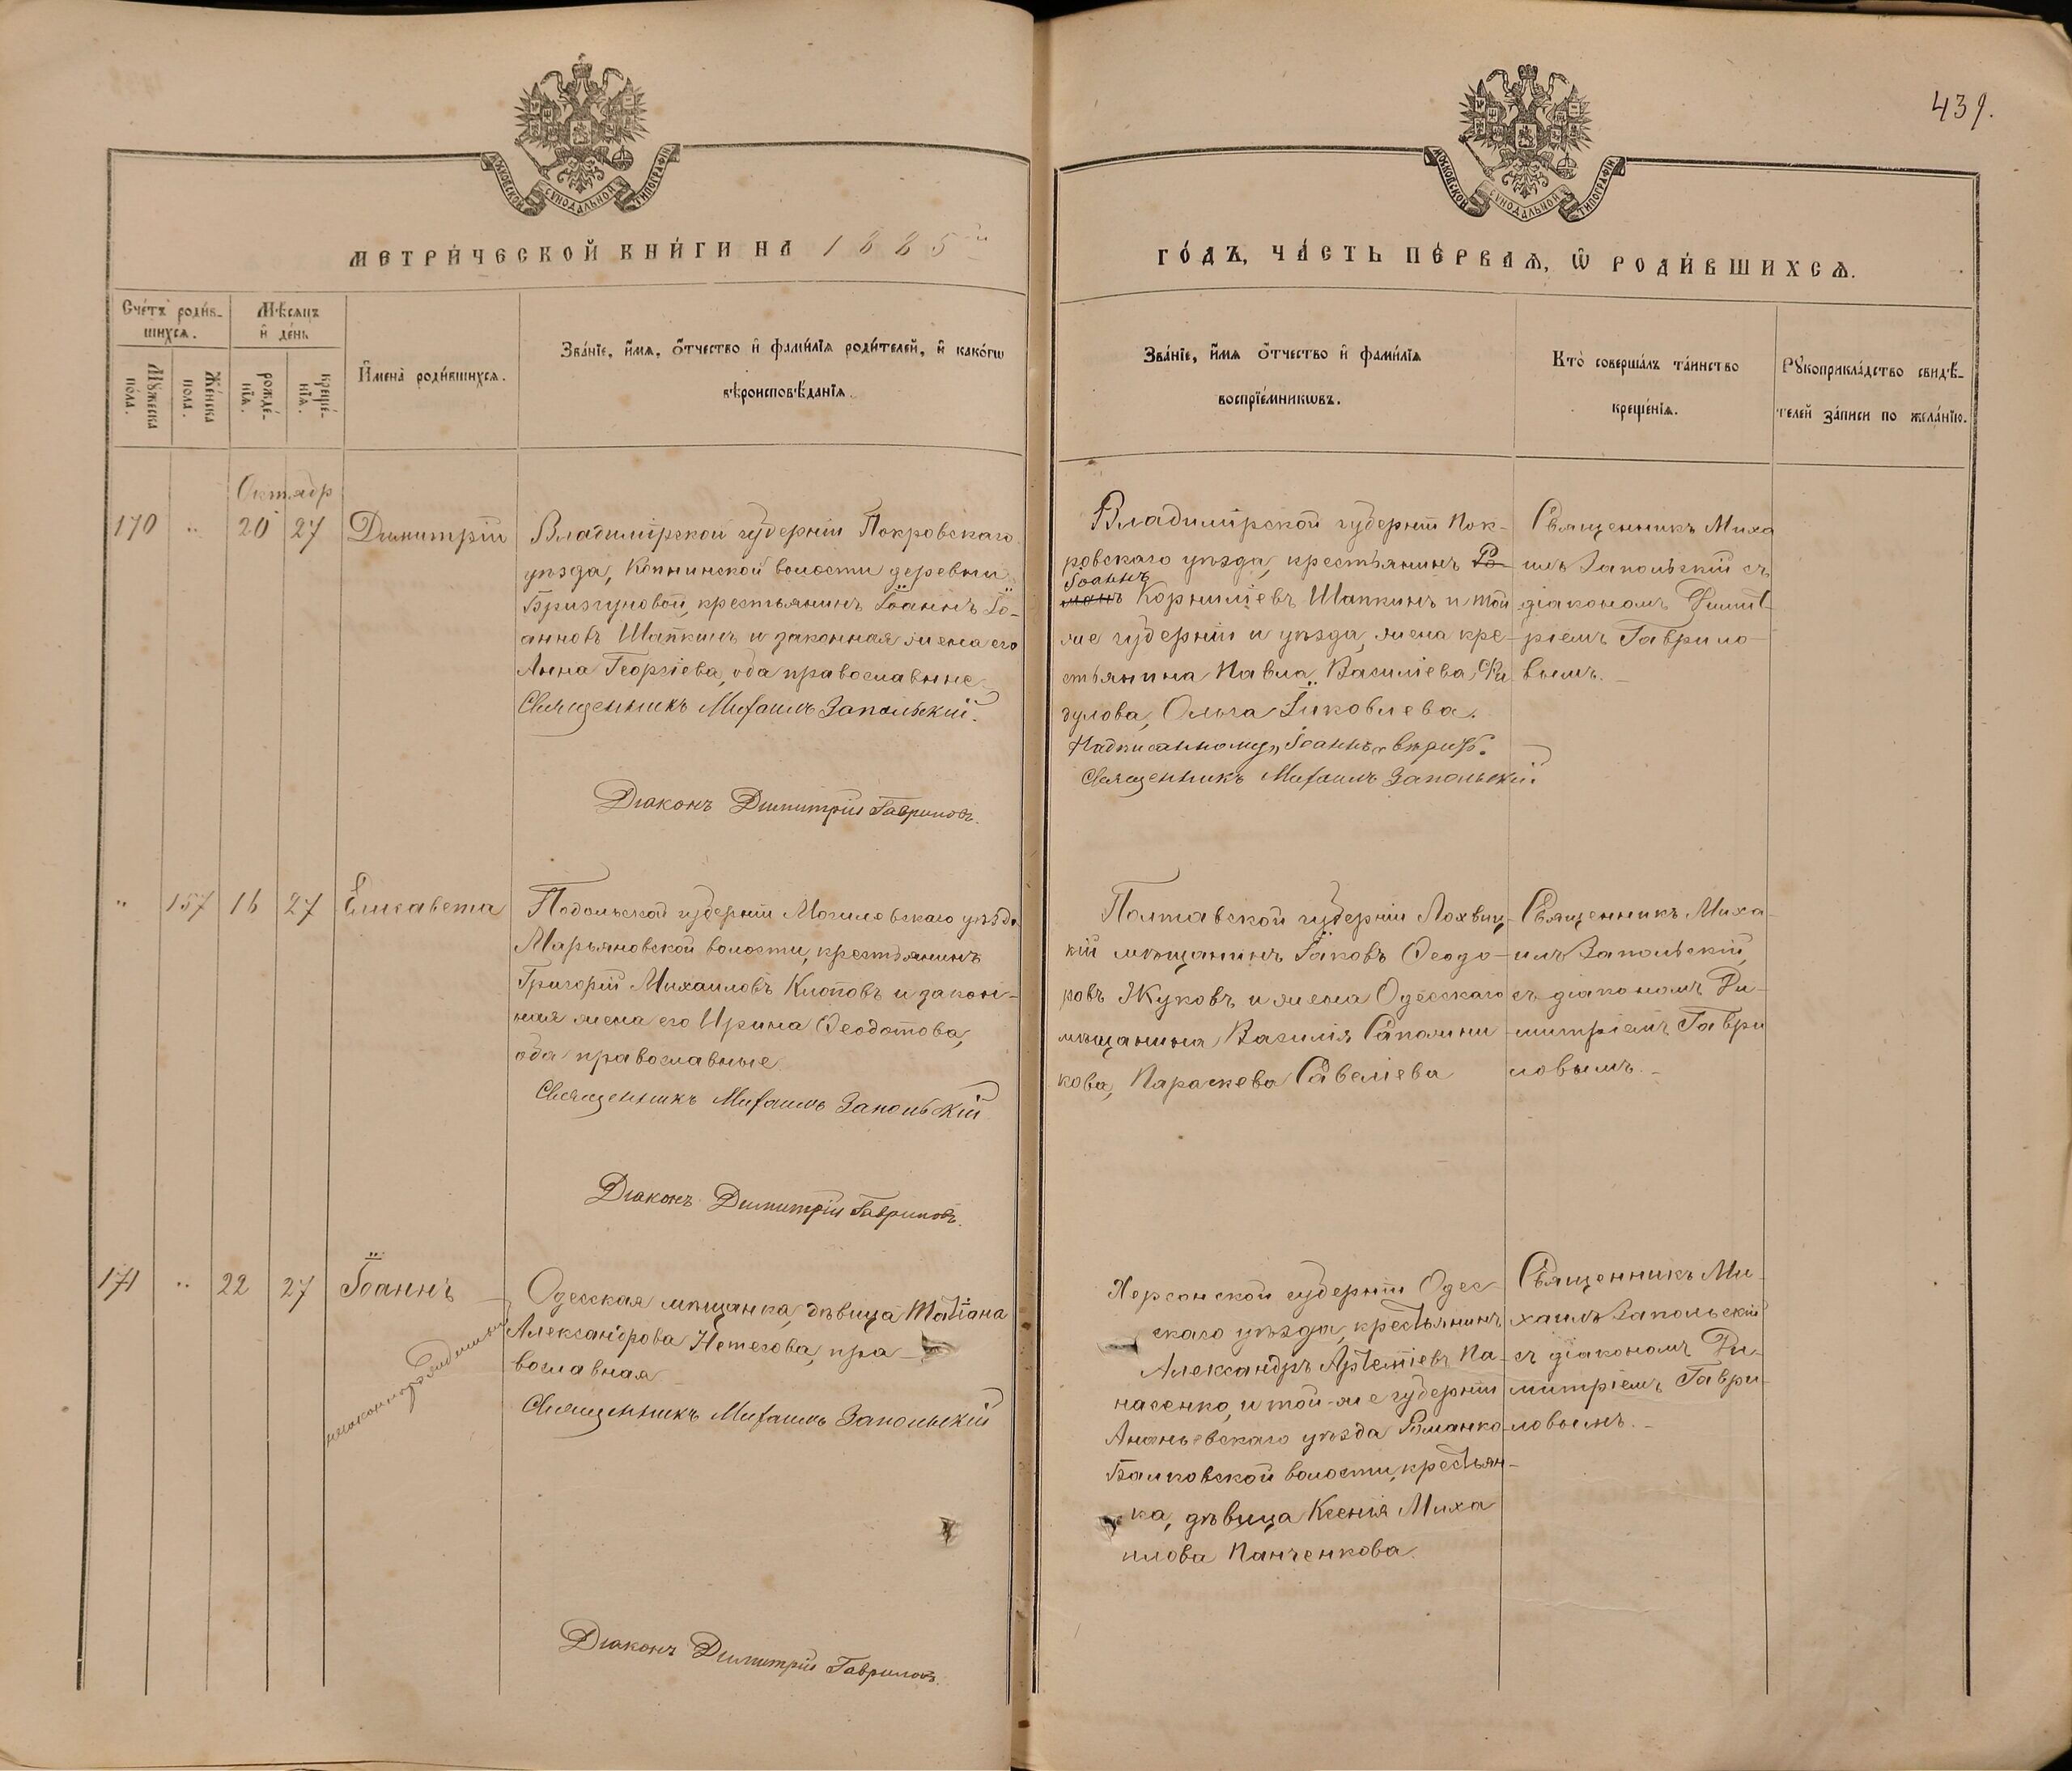 439.
МОСКОВСКОЙ СѴНОДАЛЬНОЙ ТИПОГРАФІИ
МОСКОВСКОЙ СѴНОДАЛЬНОЙ ТИПОГРАФІИ
МЕТРИ́ЧЕСКОЙ КНИ́ГИ НА 1885й
ГО́ДЪ, ЧА́СТЬ ПЕ́РВАѦ, Ѽ РОДИ́ВШИХСѦ.
Сче́тъ роди́в-
шихсѧ.
Мꙋ́жеска по́ла.
Же́нска пола.
Мѣ́сѧцъ
и҆ де́нь
рожде́-
нїѧ.
креще́-
нїѧ.
И҆мена̀ роди́вшихсѧ.
Зва́нїе, и҆́мѧ, ѻ҆́тчество и҆ фами́лїѧ роди́телей, и҆ како́гѡ
вѣроисповѣ́данїѧ.
Зва́нїе, и҆́мѧ ѻ҆́тчество и҆ фами́лїѧ
воспрїе́мникѡвъ.
Кто̀ соверша́лъ та́инство
креще́нїѧ.
Рꙋкоприкла́дство свидѣ́-
телей за́писи по жела́нїю.
Октябр
170 " 20 27 Димитрій
Владимірской губерніи Покровскаго
уѣзда, волости деревни
крестьянинъ Іоаннъ Іо-
анновъ Шапкинъ и законная жена его
Анна Георгіева, оба православные
Священникъ Михаилъ Запольскій.
Діаконъ Димитрій Гавриловъ.
Владимірской губерніи Пок-
ровскаго уѣзда, крестьянинъ Ро-
Іоаннъ
манъ Корниліевъ Шапкинъ и той
же губерніи и уѣзда, жена кре-
стьянина Павла Василіева
Ольга Іяковлева.
Надписанному „Іоаннъ„ вѣрить.
Священникъ Михаилъ Запольскій.
Священникъ Миха
илъ Запольскій съ
діакономъ Димит-
ріемъ Гаврило-
вымъ. –
" 157 16 27 Елисавета
Подольской губерніи Могилевскаго уѣзда
Марьяновской волости, крестьянинъ
Григорій Михаиловъ Клоповъ и закон-
ная жена его Ирина Ѳеодотова,
оба православные
Священникъ Михаилъ Запольскій
Діаконъ Димитрій Гавриловъ.
Полтавской губерніи Лохвиц-
кій мѣщанинъ Іаковъ Ѳеодо-
ровъ Жуковъ и жена Одесскаго
мѣщанина Василія Сапожни
кова, Параскева Савеліева
Священникъ Миха-
илъ Запольскій,
съ діакономъ Ди-
митріемъ Гаври
ловымъ. –
171 " 22 27 Іоаннъ
незаконнорожденный
Одесская мѣщанка, дѣвица Татіана
Александрова Нетесова, пра-
вославная
Священникъ Михаилъ Запольскій
Діаконъ Димитрій Гавриловъ.
Херсонской губерніи Одес-
скаго уѣзда, крестьянинъ
Александръ Артеміевъ Па-
насенко, и той-же губерніи
Ананьевскаго уѣзда Романко-
Балковской волости, крестьян-
ка, дѣвица Ксенія Миха
илова Панченкова.
Священникъ Ми-
хаилъ Запольскій
съ діакономъ Ди-
митріемъ Гаври-
ловымъ. –